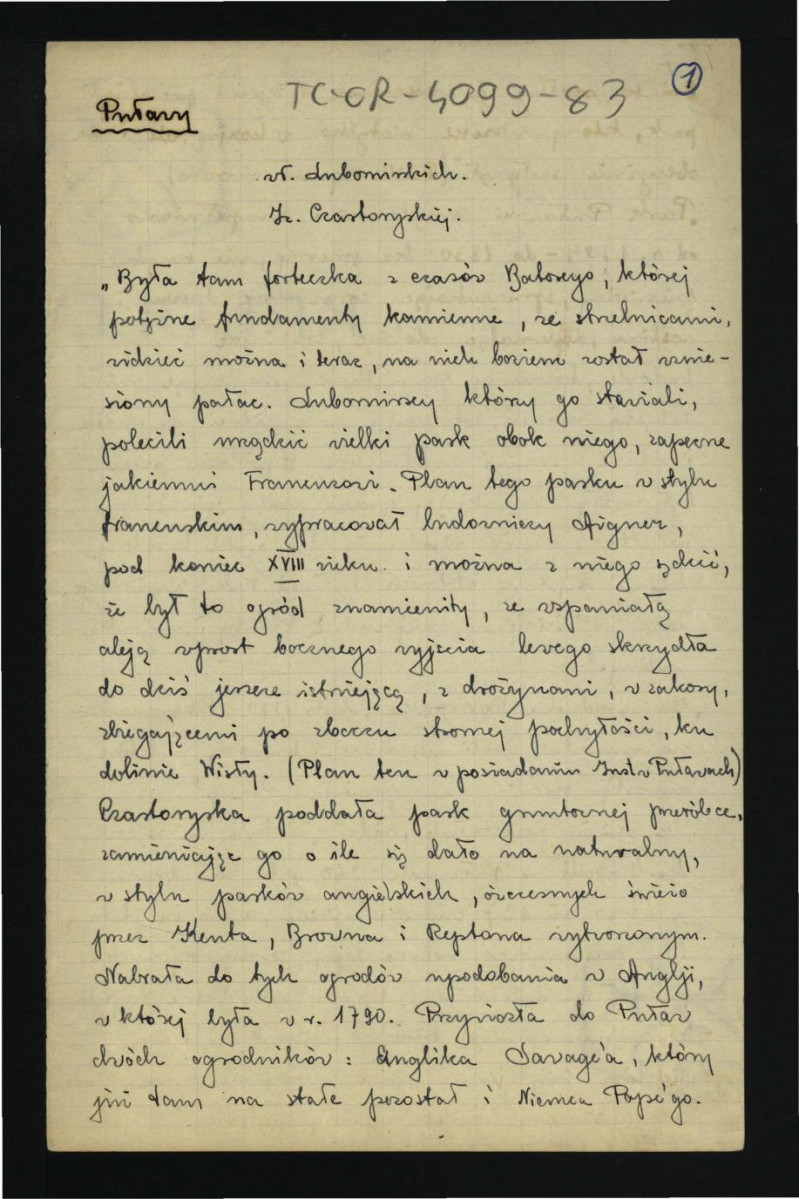 TC-OR-4099-83
1
Puławy
wł. Lubomirskich.
Iz. Czartoryskiej.
„Była tam forteczka z czasów Batorego, której
potężne fundamenty kamienne, ze strzelnicami,
widzieć można i teraz, na nich bowiem został wznie-
siony pałac. Lubomirscy którzy go stawiali,
polecili urządzić wielki park obok niego, zapewne
jakiemuś Francuzowi. Plan tego parku w stylu
francuskim, wypracował budowniczy Aigner,
pod koniec XVIII wieku i można z niego sądzić,
że był to ogród znamienity, ze wspaniałą
aleją wprost bocznego wyjścia lewego skrzydła
do dziś jeszcze istniejącą, z drożynami, w zakosy,
zbiegającemi po zboczu stromej pochyłości, ku
dolinie Wisły. (Plan ten w posiadaniu Inst. w Puławach)
Czartoryska poddała park gruntownej przeróbce,
zamieniając go o ile się dało na naturalny,
w stylu parków angielskich, ówczesnych świeżo
przez Kenta, Browna i Reptona wytworzonym.
Nabrała do tych ogrodów upodobania w Anglji,
w której była w r. 1790. Przywiozła do Puław
dwóch ogrodników: Anglika Savage'a, który
już tam na stałe pozostał i Niemca Pape'go.